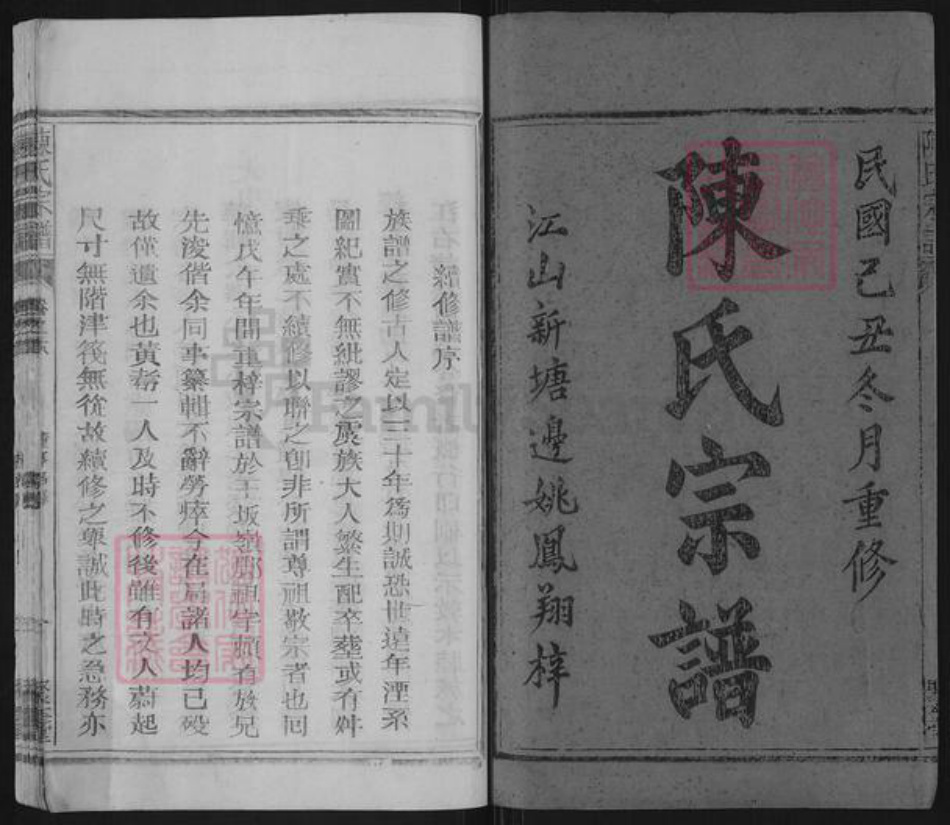 民國己丑冬月重修
陳氏宗譜
江山新塘邊姚鳳翔梓
續修譜序
族譜之修古人定以三十年爲期誠恐世遠年湮系
圖紀實不無紕謬之虞族大人繁生配卒塟或有舛
乖之處不續修以聯之卽非所謂尊祖敬宗者也回
憶戊午年間重梓宗譜於王坂嶺祠 有放兄
先浚偕余同事纂輯不辭勞瘁今在局諸人均已歿
故僅遺余也黄耇一人及時不修後雖有文人蔚起
尺寸無階津筏無從故續修之舉誠此時之急務亦
陳氏宗譜